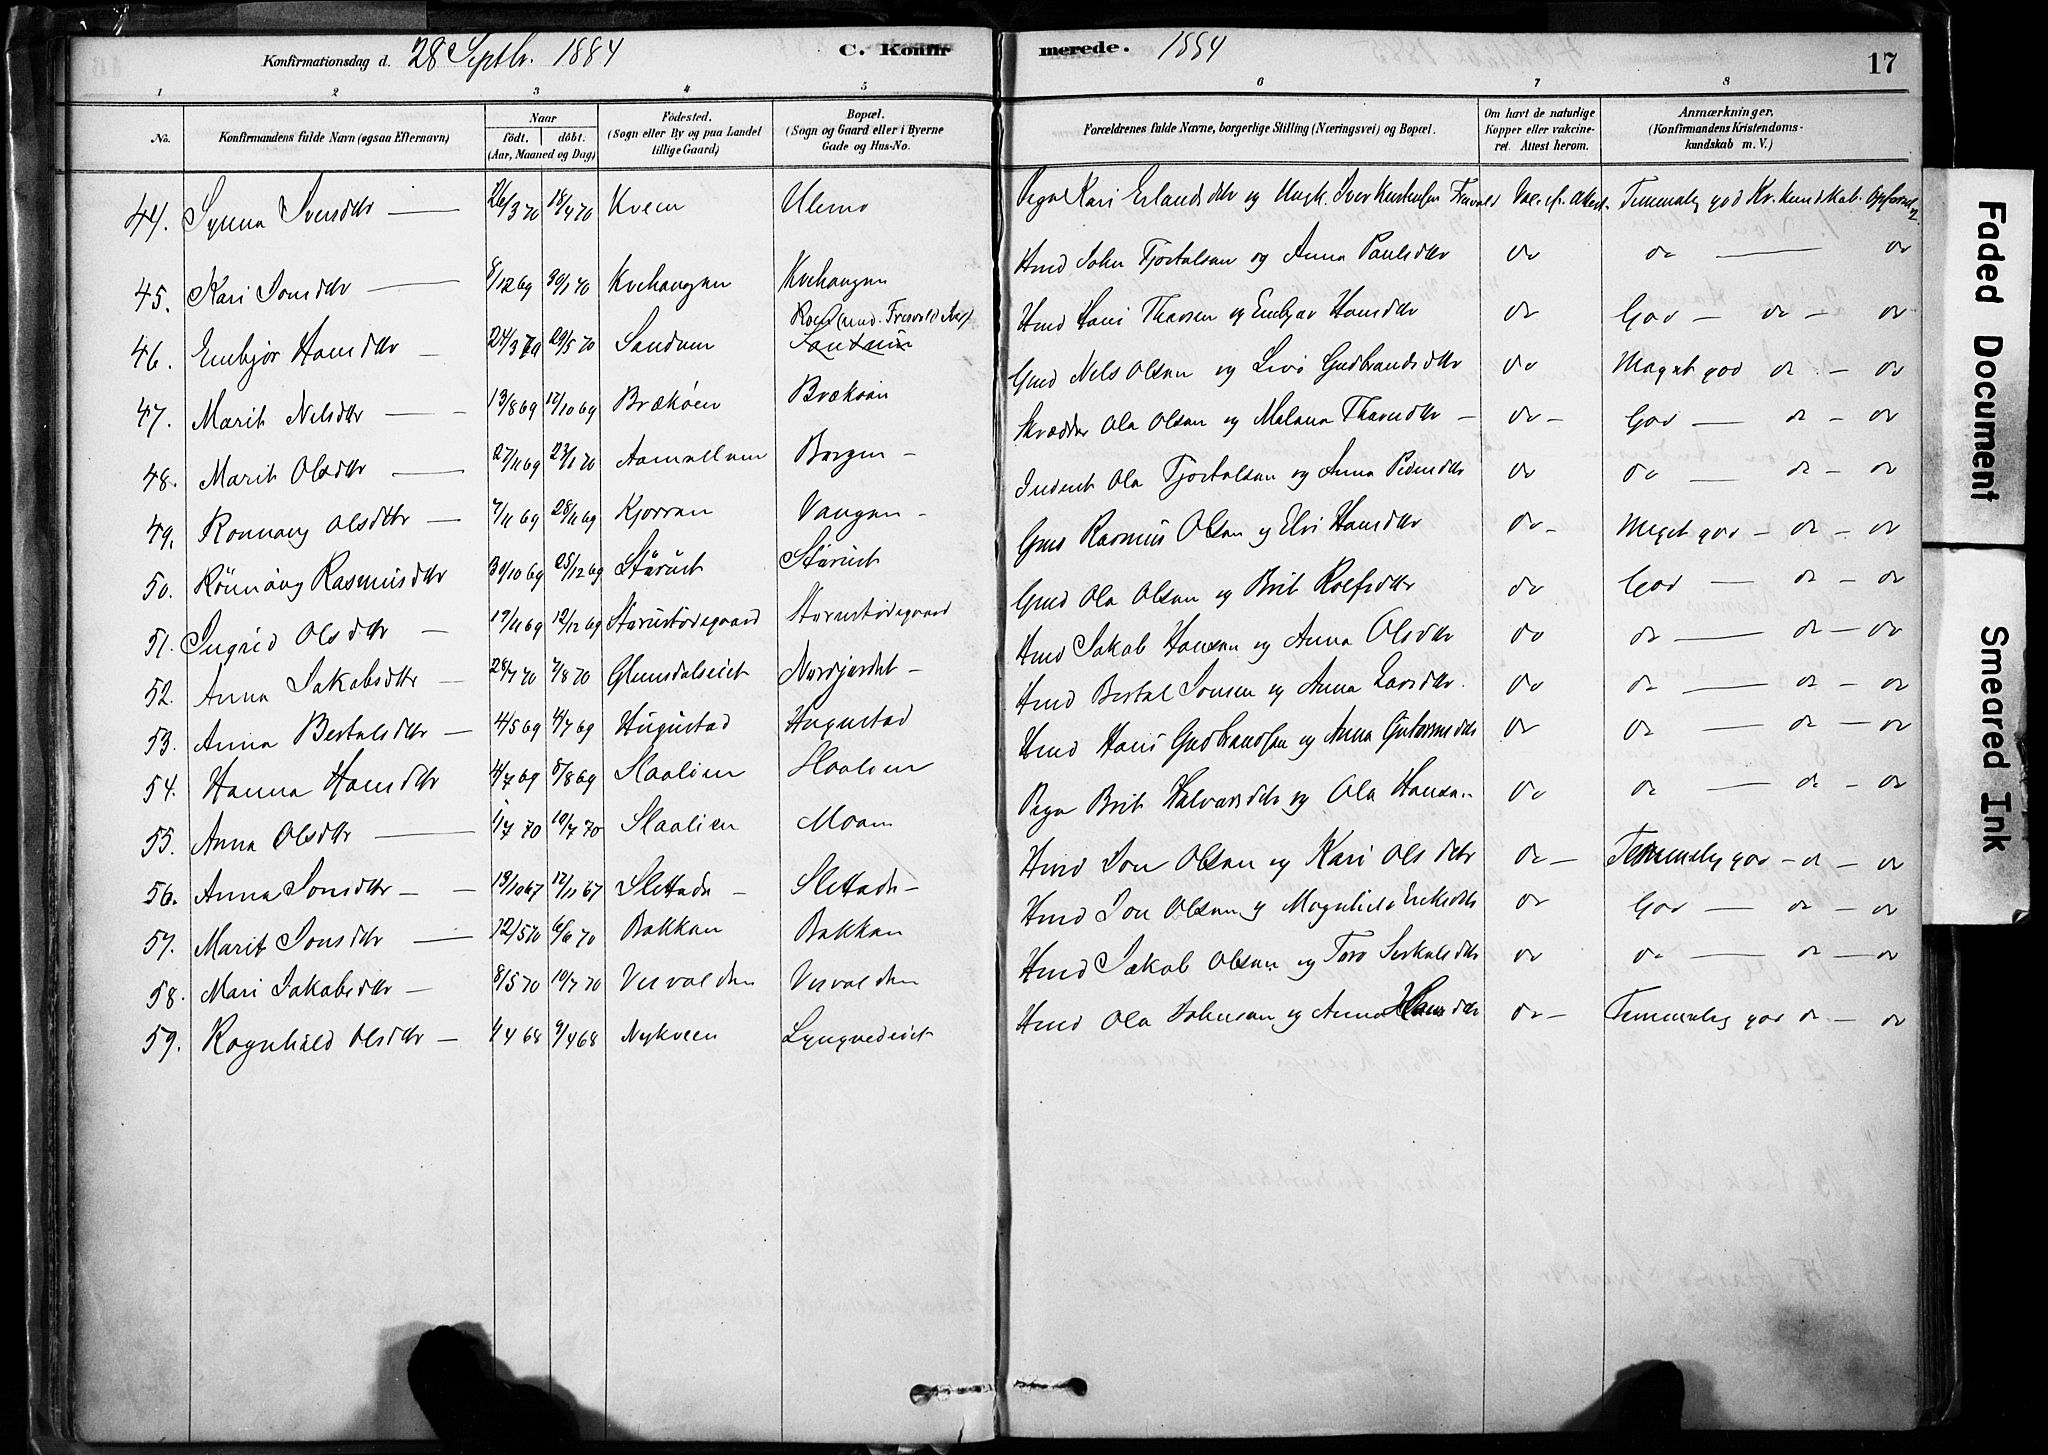 Konfirmationsdag d. 28 Septbr. 1884 C. Konfirmerede. 1884 17
1 2 3 4 5 6 7 8
No. Konfirmandens fulde Navn (ogsaa Efternavn) Naar født, døbt. (Aar, Maaned og Dag) Fødested. (Sogn eller By og paa Landet tillige Gaard) Bopæl. (Sogn og Gaard eller i Byerne Gade og Hus-No. Forældrenes fulde Navne, borgerlige Stilling (Næringsvei) og Bopæl. Om havt de naturlige Kopper eller vakcineret. Attest herom. Anmærkninger, (Konfirmandens Kristendomskundskab m. V.)
44. Synna Iversdtr — 26/3 70 18/4 70 Kveen Ulemo Pige Kari Erlandsdtr og Ungk. Iver Vac. if. Attest. Temmelig god Kr. kundskab.
45. Kari Jonsdtr — 8/12 69 30/1 70 Kvehaugen Kvehaugen Hmd John Tjostolsen og Anna Paulsdtr do do — do
46. Embjør Hansdtr — 29/5 70 Sandum Hmd Hans Thorsen og Embjør Hansdtr do God — do — do
47. Marit Nelsdtr — 13/8 69 17/10 69 Brækøien Brækøien Gmd Nels Olsen og Livø Gudbrandsdtr do Meget god do — do
48. Marit Olsdtr — 27/11 69 23/1 70 Borgen — Skrædder Ola Olsen og Malena Thorsdtr — do — God — do — do
49. Rønnaug Olsdtr — 7/11 69 28/11 69 Kjørren Vangen — Inderst Ola Tjostolsen og Anna Pedersdtr do do — do — do
50. Rønnaug Rasmusdtr 30/10 69 25/12 69 Stårust Stårust Gmd Rasmus Olsen og Eli Hansdtr do — Meget god — do — do
51. Ingrid Olsdtr — 17/11 69 12/12 69 Stårustødegaard Stårustødegaard Gmd Ola Olsen og Brit Rolfsdtr do God — do — do
52. Anna Jakobsdtr — 28/7 70 7/8 70 Glemsdalseiet Nordjordet — Hmd Jakob Hansen og Anna Olsdtr do do — do — do
53. Anna Bertelsdtr — 4/5 69 4/7 69 Hugustad Hugustad Hmd Bertel Jonsen og Anna Larsdtr. do do — do — do
54. Hanna Hansdtr 4/7 69 8/8 69 Slaalien Slaalien Hmd Hans Gudbrandsen og Anna Guttormsdtr do do — do — do
55. Anna Olsdtr — 1/7 70 10/7 70 Slaalien Moam Pige Brit Halvorsdtr og Ola Hansen. do do — do — do
56. Anna Jonsdtr — 19/10 67 17/11 67 Slettade — Slettade — Hmd Jon Olsen og Kari Olsdtr do — Temmelig god — do — do
57. Marit Jonsdtr — 12/5 70 6/6 70 Bakken Bakken Hmd Jon Olsen og Magnhild Eriksdtr do God — do — do
58. Mari Jakobsdtr — 8/5 70 10/7 70 Visvolden Visvolden Hmd Jakob Olsen og Toro do do — do — do
59. Ragnhild Olsdtr — 1/4 68 9/4 68 Nykveen Lyngvedeiet Hmd Ola Johnsen og Anna Hansdtr do — Temmelig god do — do
Faded Document
Smeared Ink